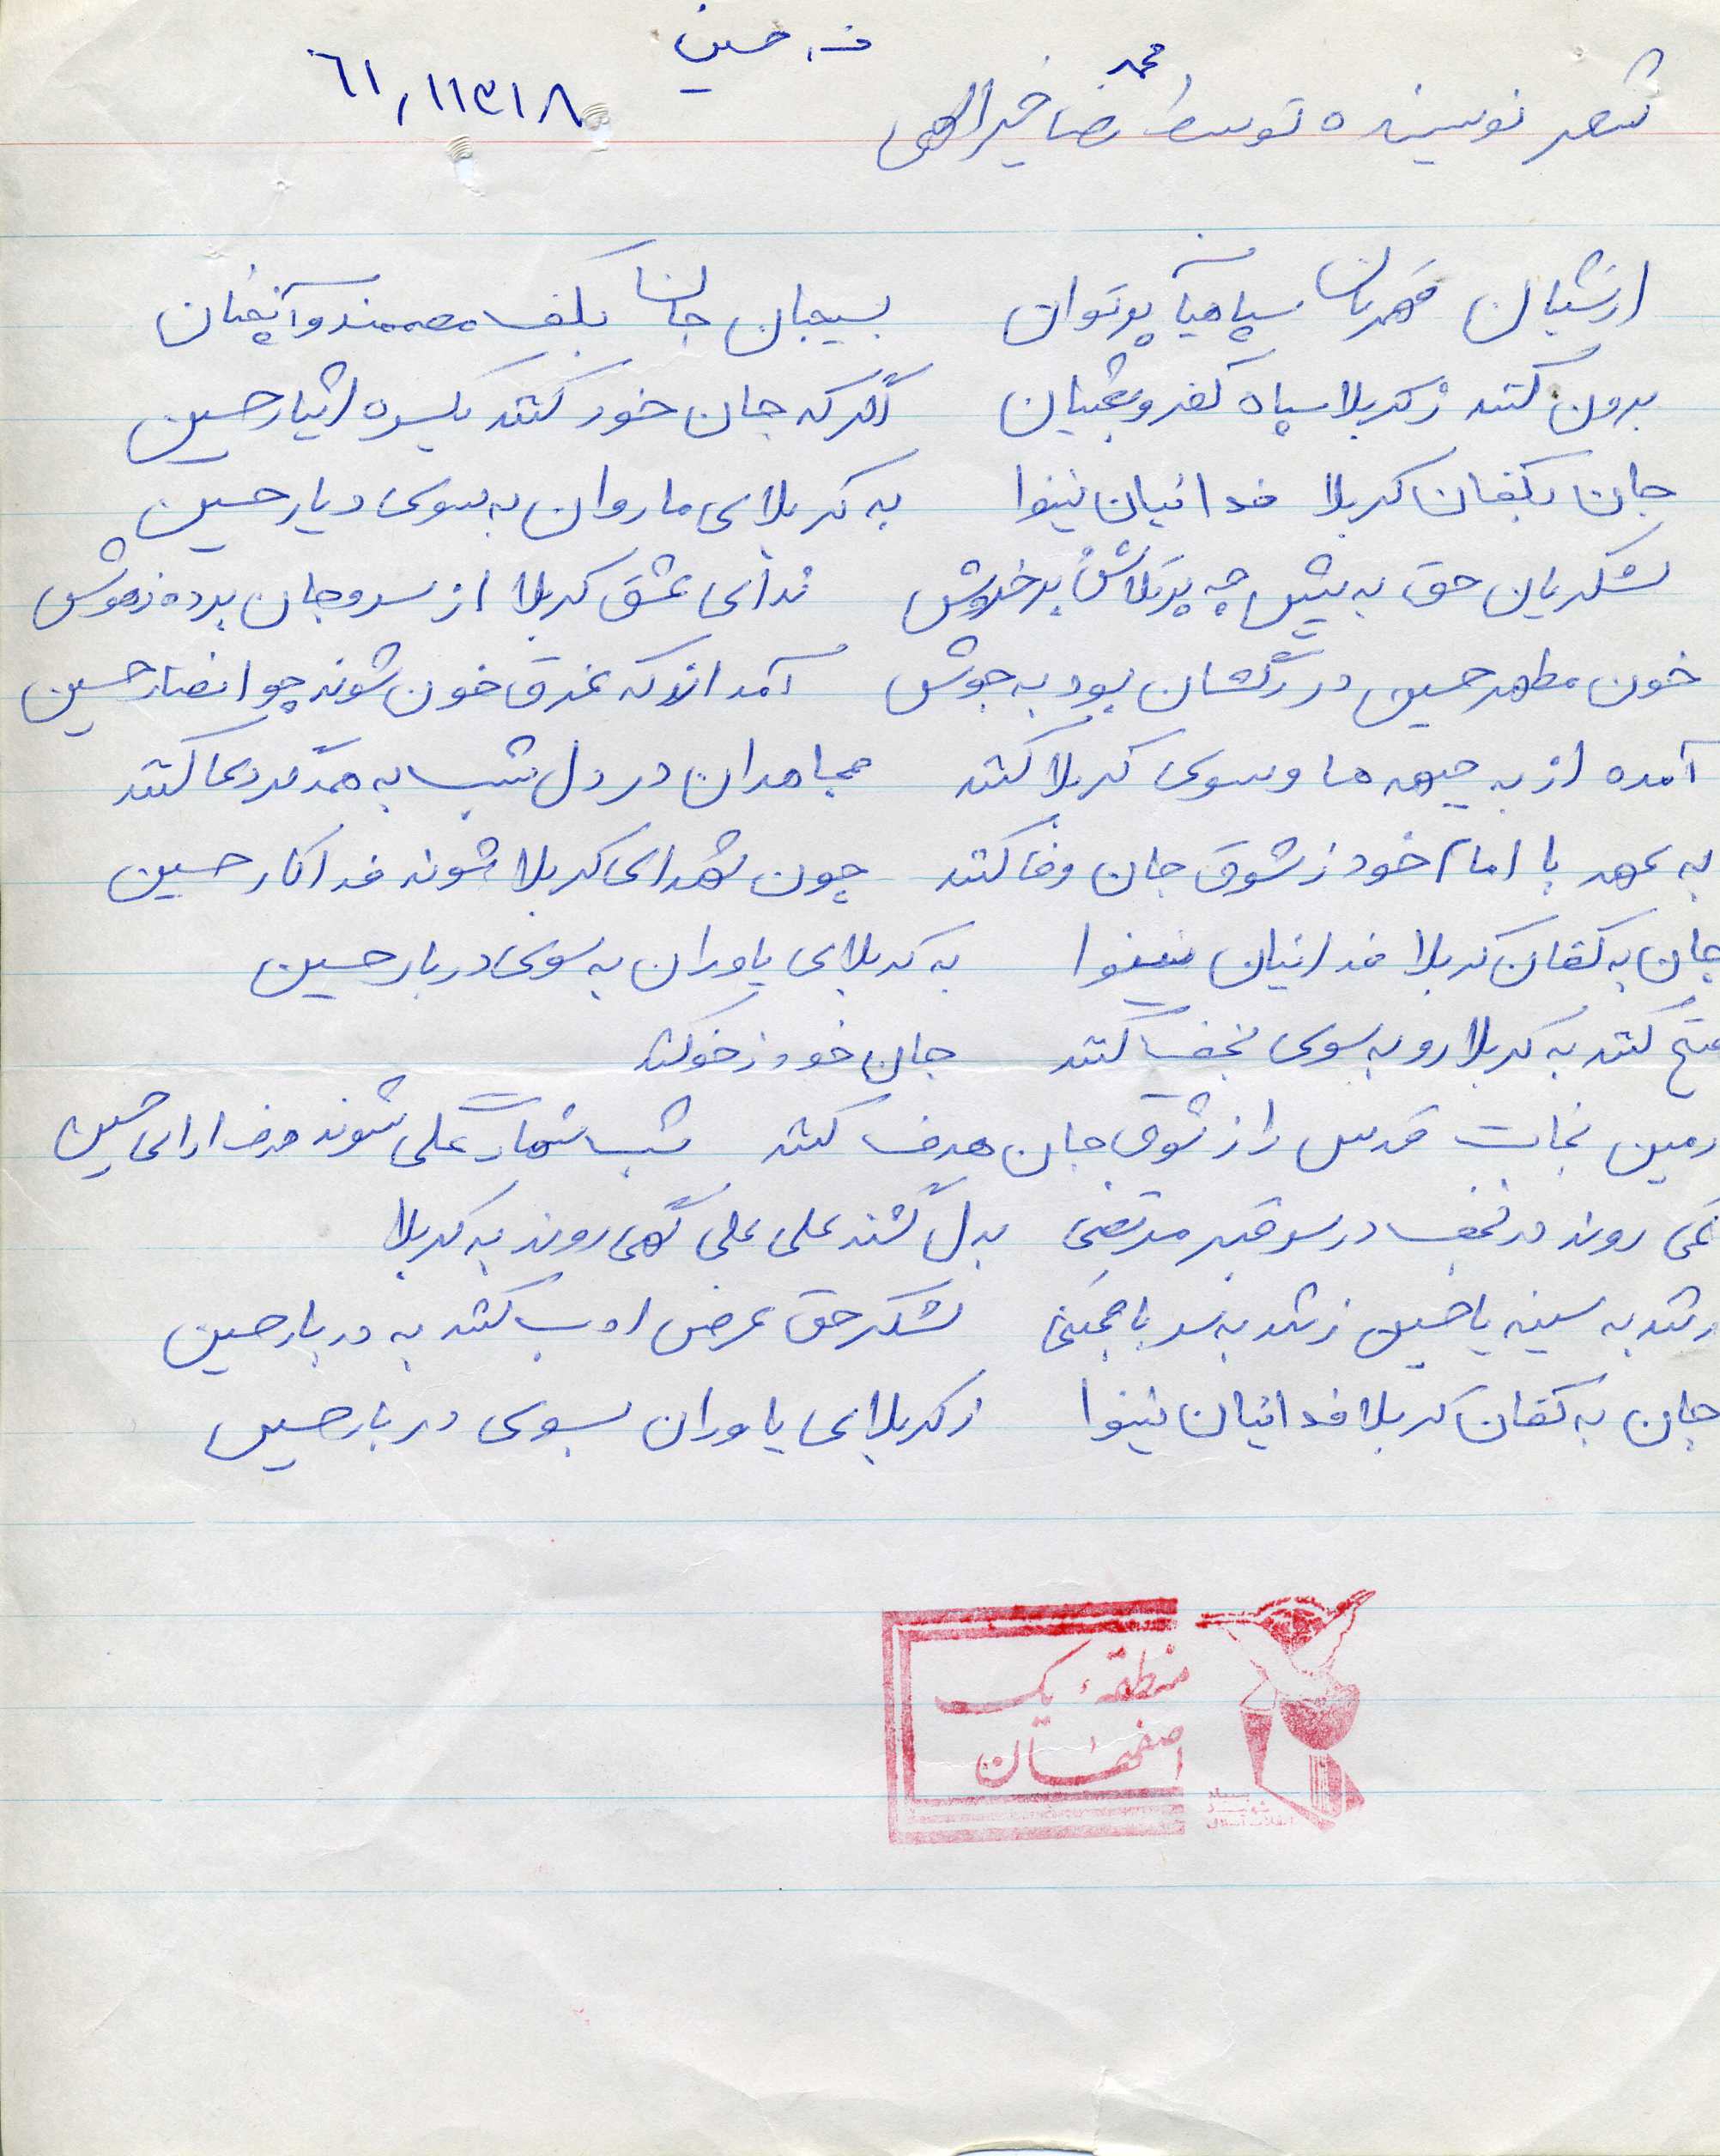 ف. حسین
٦١,١١٣١٨
محمد
شعر نویسنده توسط رضا خیرالهی
ارتشیان قهرمان سپاهیان پرتوان بسیجیان جان بکف مصممند و آنچنان
برون کنند ز کربلا سپاه کفر و بعثیان اگر که جان خود کنند یکسره ایثار حسین
جان بکفان کربلا فدائیان نینوا به کربلای ما روان به سوی دیار حسین
لشکریان حق به پیش چه پرتلاش پرخروش ندای عشق کربلا از سر و جان برده ز هوش
خون مطهر حسین در رگشان بود به جوش آمداند که غرق خون شوند چو انصار حسین
آمده از به جبهه ها و سوی کربلا کنند مجاهدان در دل شب به همدگر دعا کنند
به عهد با امام خود ز شوق جان وفا کنند چون شهدای کربلا شوند فداکار حسین
جان به کفان کربلا فدائیان نینوا به کربلای یاوران به سوی دربار حسین
فتح کنند به کربلا رو به سوی نجف کنند جان خود ز خود کنند
زمین نجات قدس را ز شوق جان هدف کنند شب شهادت علی شوند حسین
می روند در نجف در سر قبر مرتضی به دل کنند علی علی گهی روند به کربلا
زنند به سینه یا حسین زنند به سر با خمینی لشکر حق عرض ادب کنند به دربار حسین
جان به کفان کربلا فدائیان نینوا ز کربلای یاوران بسوی دربار حسین
منطقه یک
اصفهان
بنیاد
شهید
انقلاب اسلامی